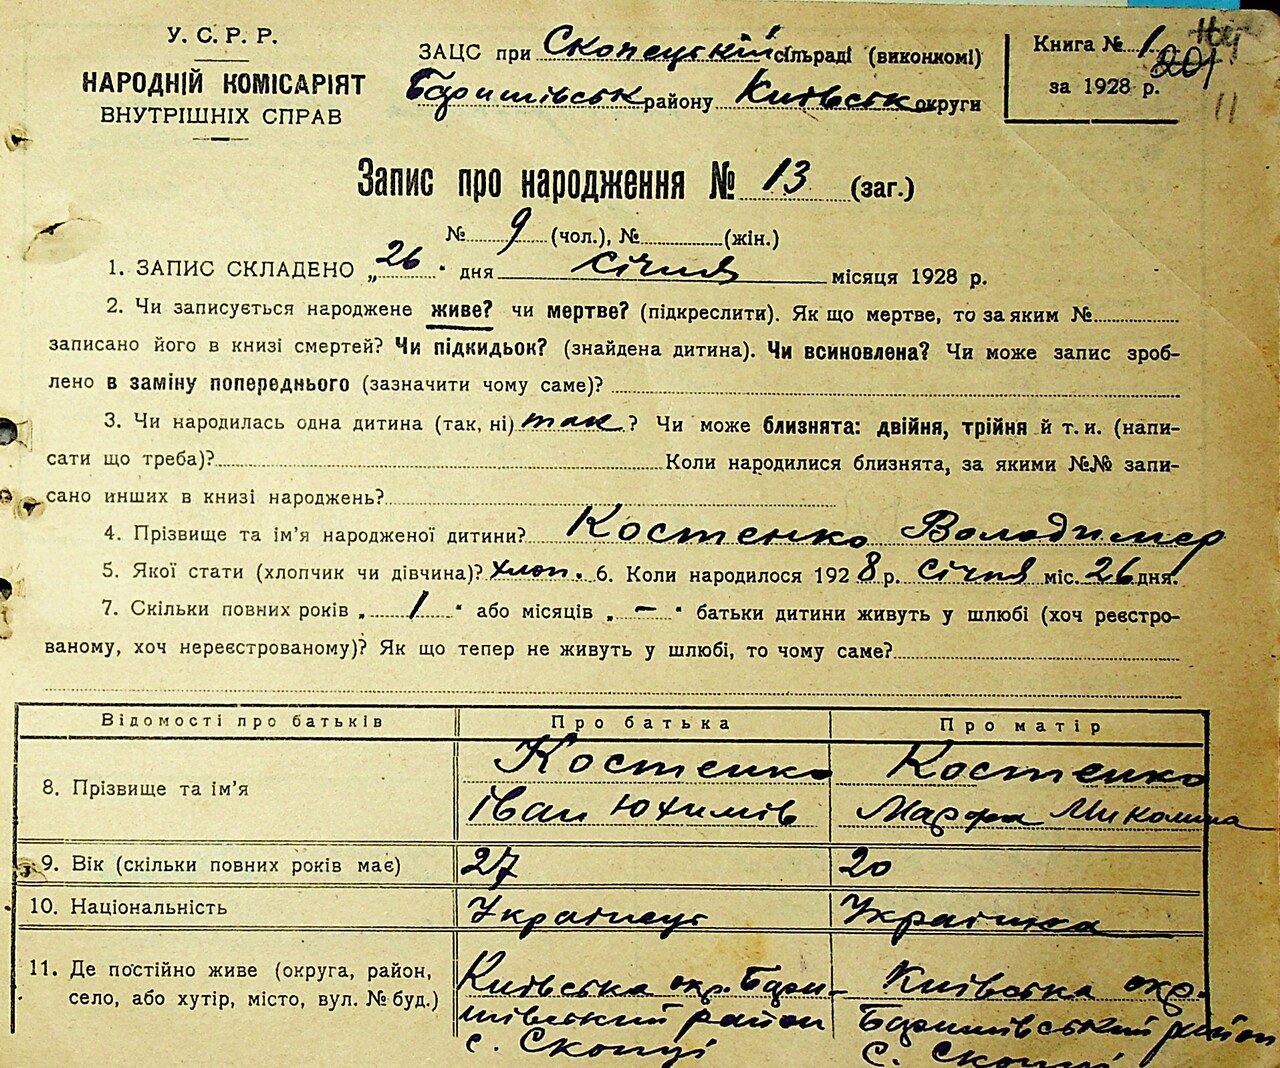 У. С. Р. Р.
НАРОДНІЙ КОМІСАРІЯТ
ВНУТРІШНІХ СПРАВ
ЗАЦС при Скопецькій сільраді (виконкомі)
Баришівськ району Київськ округи
Книга № 1
201
за 1928 р.
11
Запис про народження № 13 (заг.)
№ 9 (чол.), № (жін.)
1. ЗАПИС СКЛАДЕНО „26" дня січня місяця 1928 р.
2. Чи записується народжене живе? чи мертве? (підкреслити). Як що мертве, то за яким №
записано його в книзі смертей? Чи підкидьок? (знайдена дитина). Чи всиновлена? Чи може запис зроб-
лено в заміну попереднього (зазначити чому саме)?
3. Чи народилась одна дитина (так, ні) так ? Чи може близнята: двійня, трійня й т. и. (напи-
сати що треба)? Коли народилися близнята, за якими №№ запи-
сано инших в книзі народжень?
4. Прізвище та ім'я народженої дитини? Костенко Володимер
5. Якої стати (хлопчик чи дівчина)? хлоп. 6. Коли народилося 1928 р. січня міс. 26 дня.
7. Скільки повних років „ 1 " або місяців „ — " батьки дитини живуть у шлюбі (хоч реєстро-
ваному, хоч нереєстрованому)? Як що тепер не живуть у шлюбі, то чому саме?
Відомості про батьків Про батька Про матір
8. Прізвище та ім'я
Костенко
Іван Юхимів
Костенко
Марфа Миколина
9. Вік (скільки повних років має) 27 20
10. Національність Українець Українка
11. Де постійно живе (округа, район,
село, або хутір, місто, вул. № буд.)
Київська окр. Бари-
шівський район
с. Скопці
Київська окр.
Баришівський район
с. Скопці